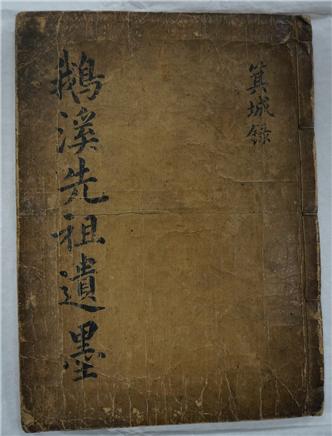 箕城錄
鵝溪先祖遺墨